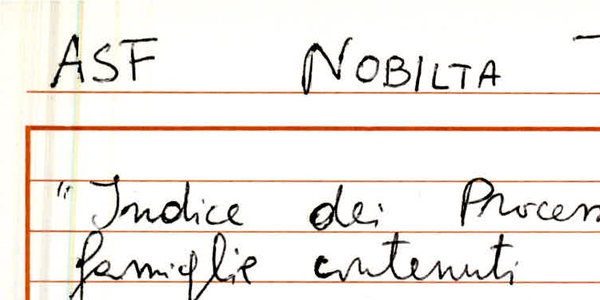 ASF NOBILTA
"Indice dei Process
famiglie contenuti